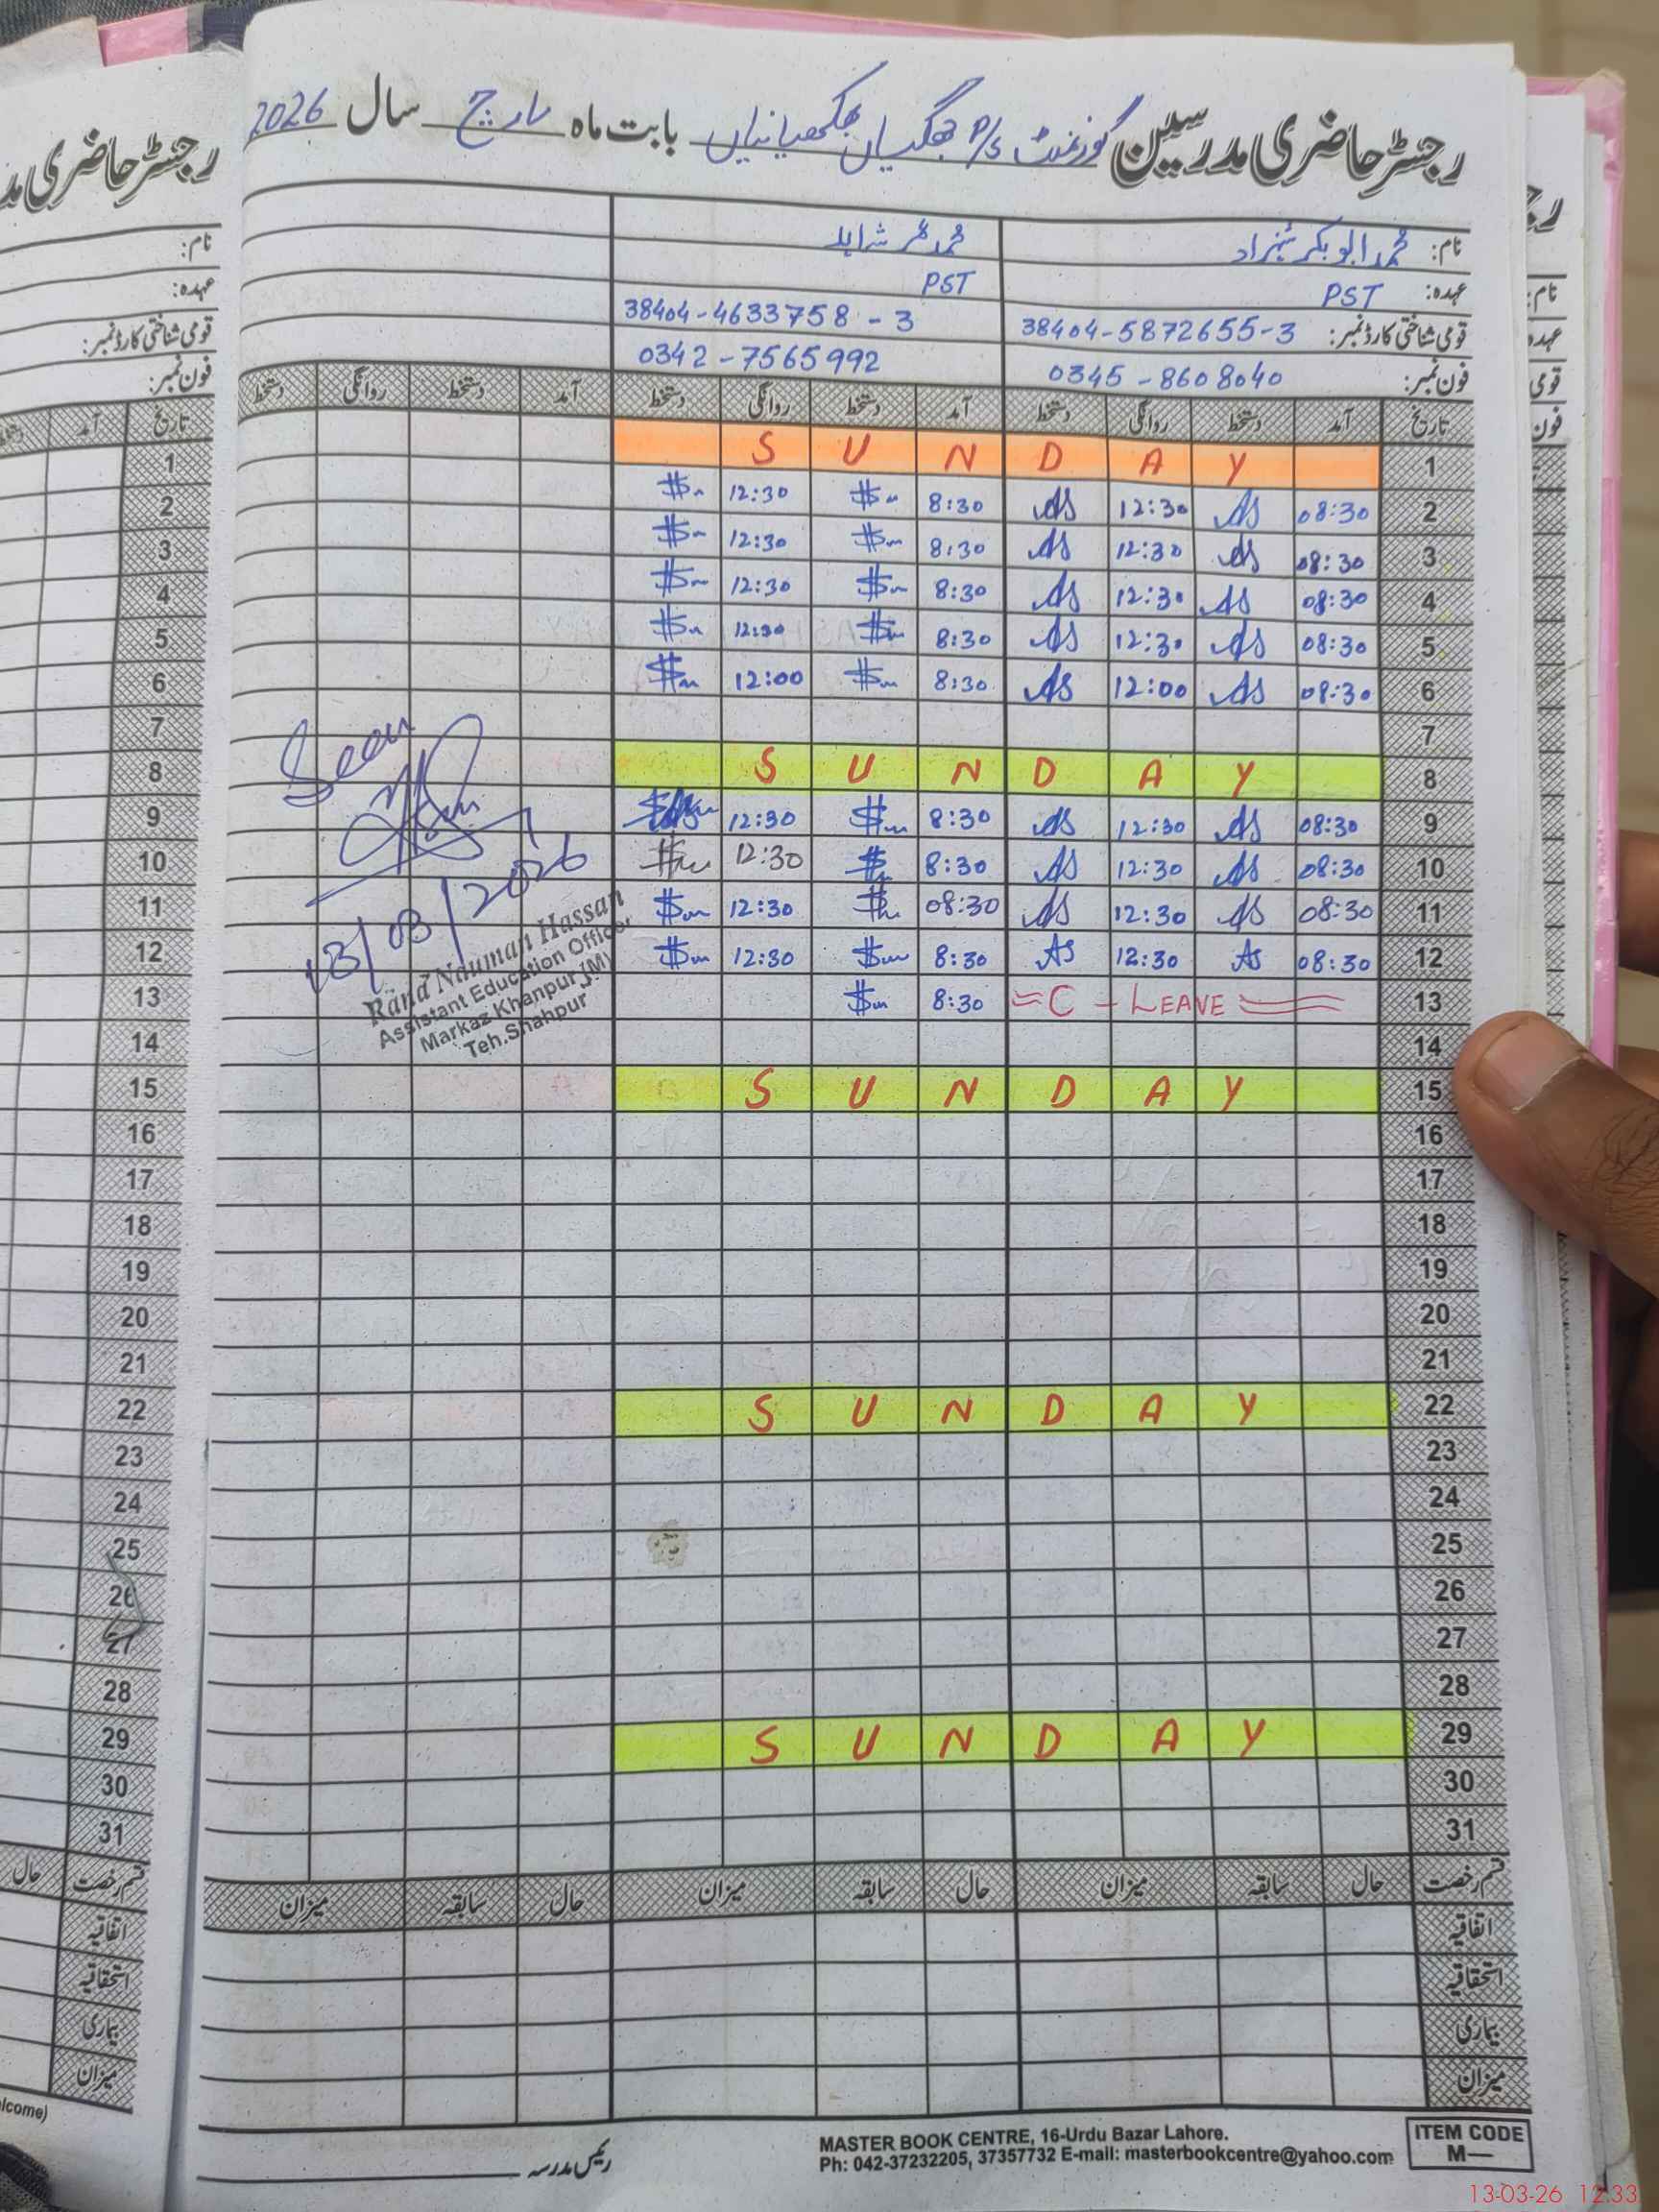 رجسٹر حاضری مدرسین گورنمنٹ P/S بابت ماہ مارچ سال 2026
نام: محمد ابوبکر شہزاد محمد عمر شاہد
عہدہ: PST PST
قومی شناختی کارڈ نمبر: 38404-5872655-3 38404-4633758-3
فون نمبر: 0345-8608040 0342-7565992
تاریخ آمد دستخط روانگی دستخط آمد دستخط روانگی دستخط آمد دستخط روانگی دستخط
1 SUNDAY
2 08:30 AS 12:30 AS 8:30 12:30
3 08:30 AS 12:30 AS 8:30 12:30
4 08:30 AS 12:30 AS 8:30 12:30
5 08:30 AS 12:30 AS 8:30 12:30
6 08:30 AS 12:00 AS 8:30 12:00
7
8 SUNDAY
9 08:30 AS 12:30 AS 8:30 12:30
10 08:30 AS 12:30 AS 8:30 12:30
11 08:30 AS 12:30 AS 08:30 12:30
12 08:30 AS 12:30 AS 8:30 12:30
13 C-LEAVE 8:30
14
15 SUNDAY
16
17
18
19
20
21
22 SUNDAY
23
24
25
26
27
28
29 SUNDAY
30
31
Seen
13/03/2026
Rana Nauman Hassan
Assistant Education Officer
Markaz Khanpur (M)
Teh.Shahpur
قسم رخصت حال سابقہ میزان حال سابقہ میزان حال سابقہ میزان
اتفاقیہ
استحقاقیہ
بیماری
میزان
رئیس مدرسہ
MASTER BOOK CENTRE, 16-Urdu Bazar Lahore.
Ph: 042-37232205, 37357732 E-mail: masterbookcentre@yahoo.com
ITEM CODE
M—
رجسٹر حاضری مد
نام:
عہدہ:
قومی شناختی کارڈ نمبر:
فون نمبر:
تاریخ آمد
1
2
3
4
5
6
7
8
9
10
11
12
13
14
15
16
17
18
19
20
21
22
23
24
25
26
27
28
29
30
31
قسم رخصت حال
اتفاقیہ
استحقاقیہ
بیماری
میزان
lcome)
نام:
عہدہ
قومی
فون
13-03-26 12:33